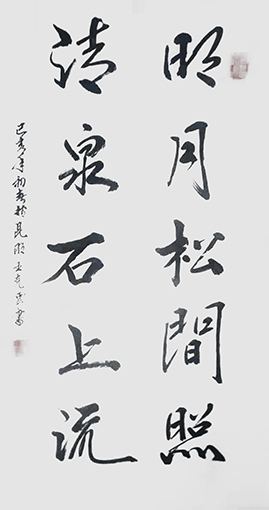 明月松間照
清泉石上流
己亥年初春於昆明王克武書